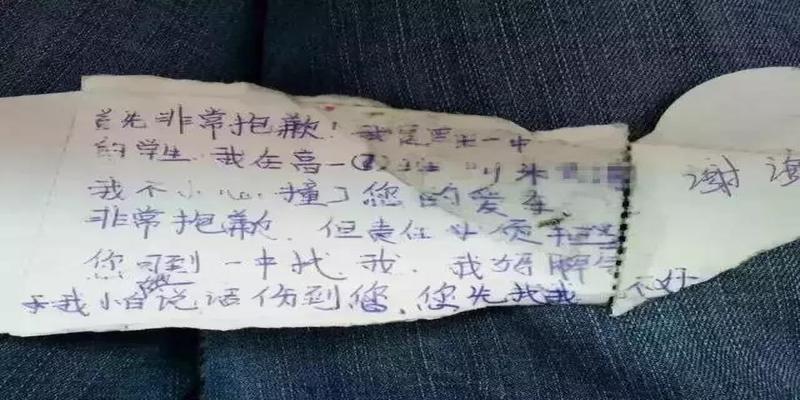 首先非常抱歉！我是一中
的学生，我在高一
我不小心撞了您的爱车，
非常抱歉，但责任必须担
您可到一中找我，我妈脾气
我怕说话伤到您，您先找我 不好
谢谢